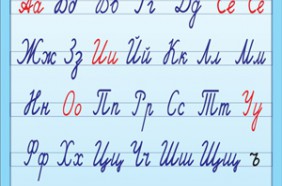 Аа Бб Вв Гг Дд Ее Ёё
Жж Зз Ии Йй Кк Лл Мм
Нн Оо Пп Рр Сс Тт Уу
Фф Хх Цц Чч Шш Щщ ъ